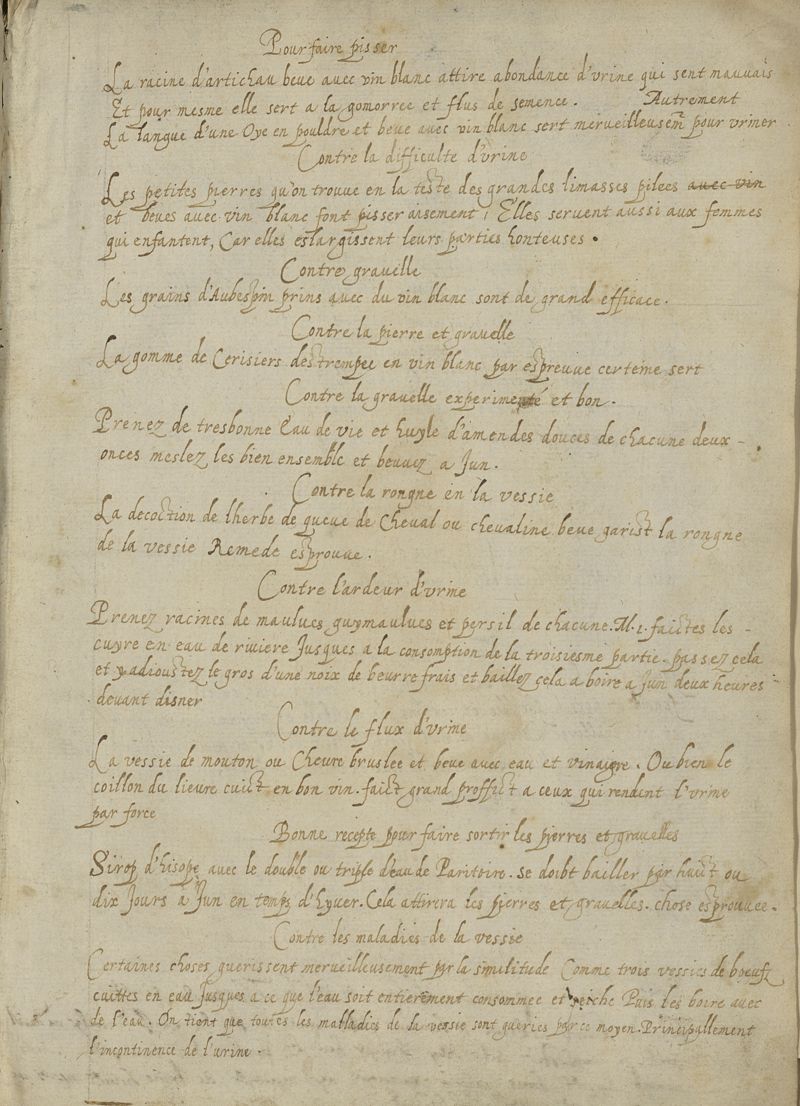 Pour faire pisser
La racine d'artichau beue auec vin blanc attire abondance d'vrine qui sent mauuais
Et pour mesme elle sert a la gomorree et flus de semence. Autrement
La langue d'une Oye en pouldre et beue auec vin blanc sert merueilleusemt pour vriner
Contre la difficulte d'vrine
Les petites pierres qu'on trouue en la teste des grandes limasses pilees auec vin
et beues auec vin blanc font pisser aisement, Elles seruent aussi aux femmes
qui enfantent, Car elles eslargissent leurs parties honteuses.
Contre grauelle
Les grains d'Aubespin prins auec du vin blanc sont de grand efficace.
Contre la pierre et grauelle
La gomme de Cerisiers destrempee en vin blanc par espreuue certeine sert
Contre la grauelle experimenté et bon.
Prenez de tresbonne Eau de vie et huyle d'amendes douces de chacune deux -
onces meslez les bien ensemble et beuuez a Jun.
Contre la rongne en la vessie
La decoction de lherbe de queue de Cheual ou cheualine beue garist la rongne
de la vessie Remede esprouue.
Contre l'ardeur d'vrine
Prenez racines de maulues guymaulues et persil de chacune. M. 1. faictes les -
cuyre en eau de riuiere Jusques a la consomption de la troisiesme partie. passez cela
et y adioustez le gros d'une noix de beurre frais et baillez cela a boire a Jun deux heures
deuant disner
Contre le flux d'vrine
La vessie de mouton ou Cheure bruslee et beue auec eau et vinaigre. Ou bien le
coillon du lieure cuict en bon vin. faict grand proffict a ceux qui rendent l'vrine
par force
Bonne recepte pour faire sortir les pierres et grauelles
Sirop d'hisope auec le double ou triple d'eau de Paritoire. se doibt bailler par huict ou
dix Jours a Jun en temps d'hyuer. Cela attirera les pierres et grauelles. chose esprouuee.
Contre les maladies de la vessie
Certaines choses guerissent merueilleusement par la similitude Comme trois vessies de boeufz
cuittes en eau Jusques a ce que l'eau soit entierement consommee et seiche Puis les boire auec
de l'eau. On tient que toutes les malladies de la vessie sont gueries par ce moyen. Principallement
l'incontinence de l'urine.